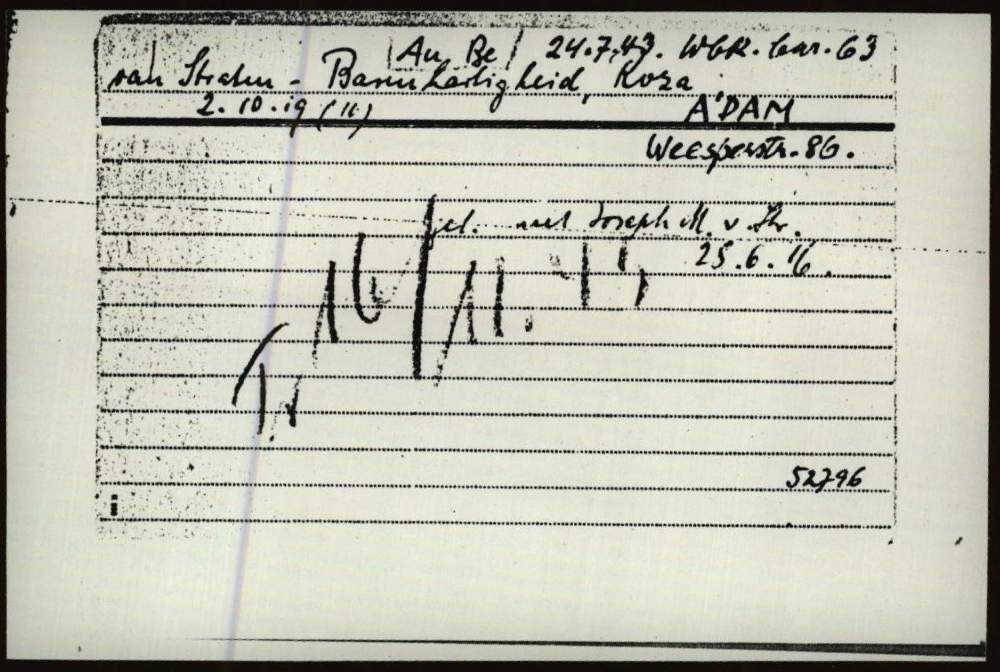 Au Be 24.7.43. WbK. bar. 63
van Straten - Barmhartigheid, Roza
2.10.19 (11)
A'DAM
Weesperstr. 86.
gel. met Joseph M. v. Str.
25.6.16.
16/11.
52796
i